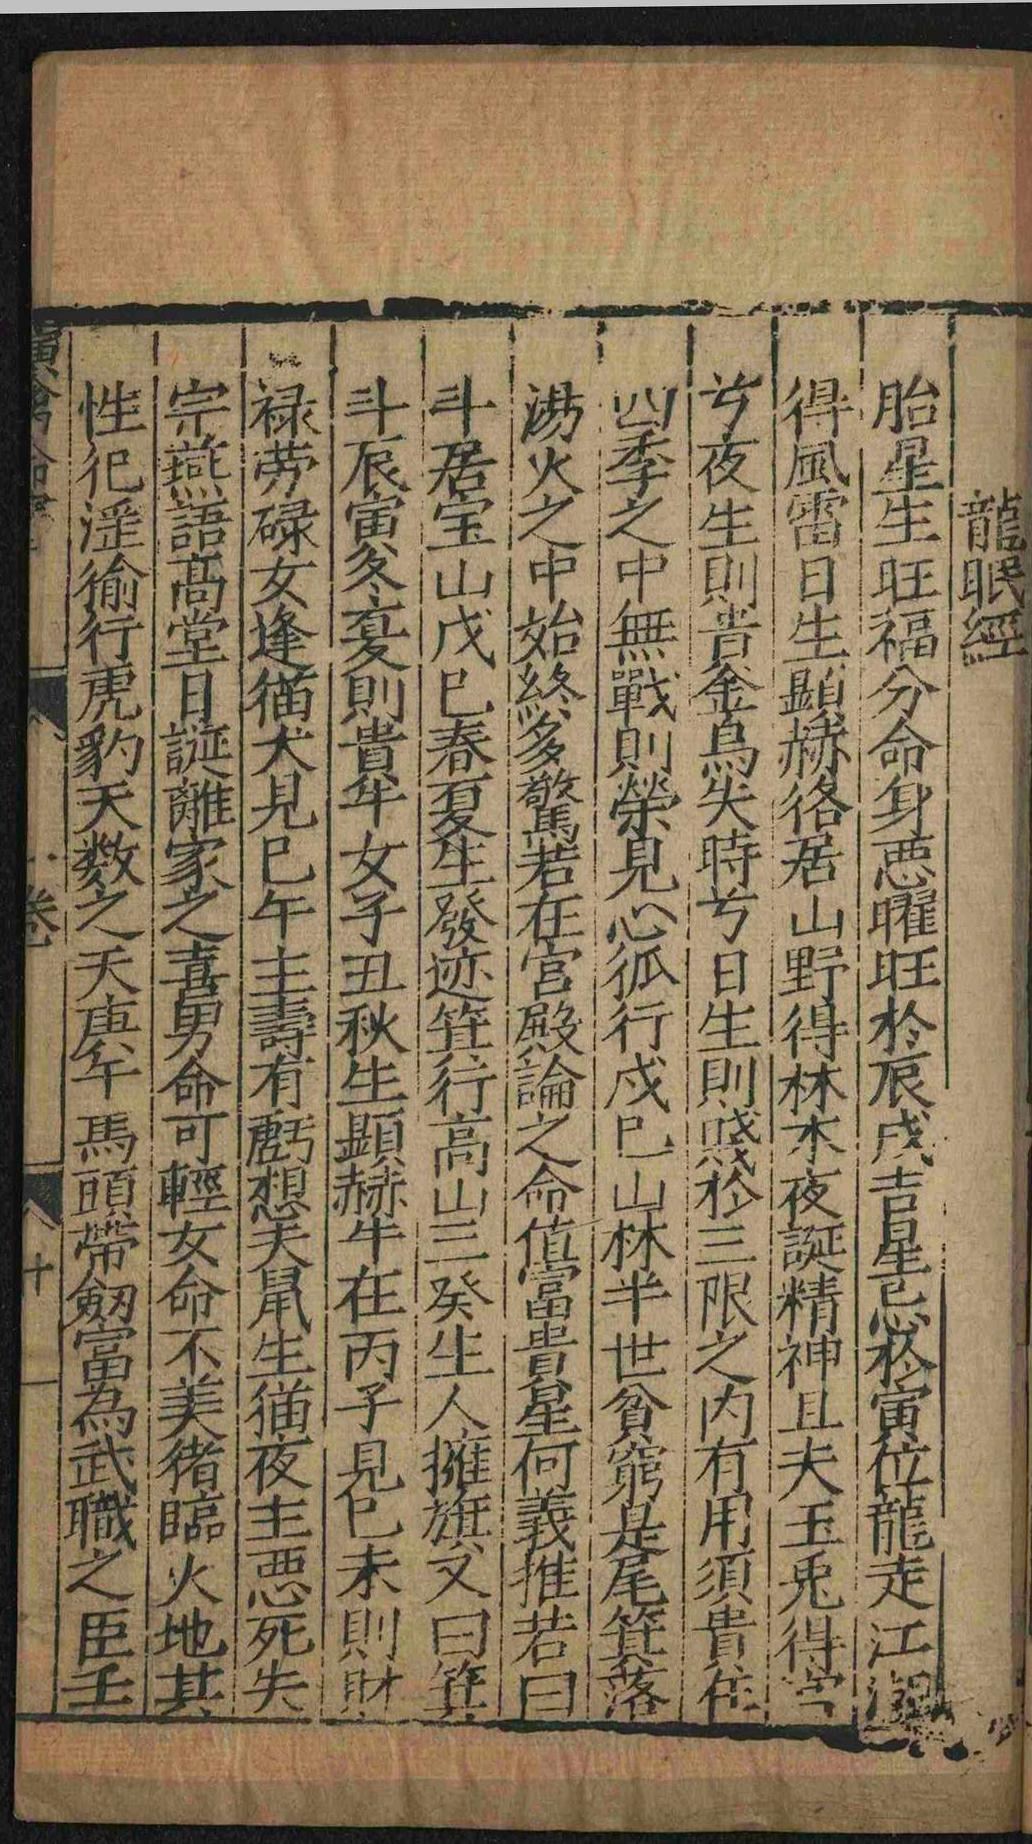 龍眠經
胎星生旺福分命身恶曜旺於辰戌吉星忌於寅位龍走江湖
得風雷日生顕赫徉居山野得林木夜誕精神且夫玉兎得宫
兮夜生則貴金烏失時兮日生則賤於三限之内有用須貴在
四季之中無戰則榮見心狐行戊巳山林半世貧窮是尾箕落
湯火之中始終多驚若在宫殿論之命值富貴星何義推若曰
斗居宝山戊巳春夏生發迹箕行高山三癸生人擁旌又曰箕
斗辰寅冬夏則貴年女子丑秋生顕赫牛在丙子見巳未則財
禄劳碌女逢猫犬見巳午主壽有虧想夫鼠生猫夜主恶死失
宗燕語髙堂日誕離家之喜男命可輕女命不美猪臨火地其
性犯淫偷行虎豹天数之夭庚午馬頭帶劔富為武職之臣壬
卷
十